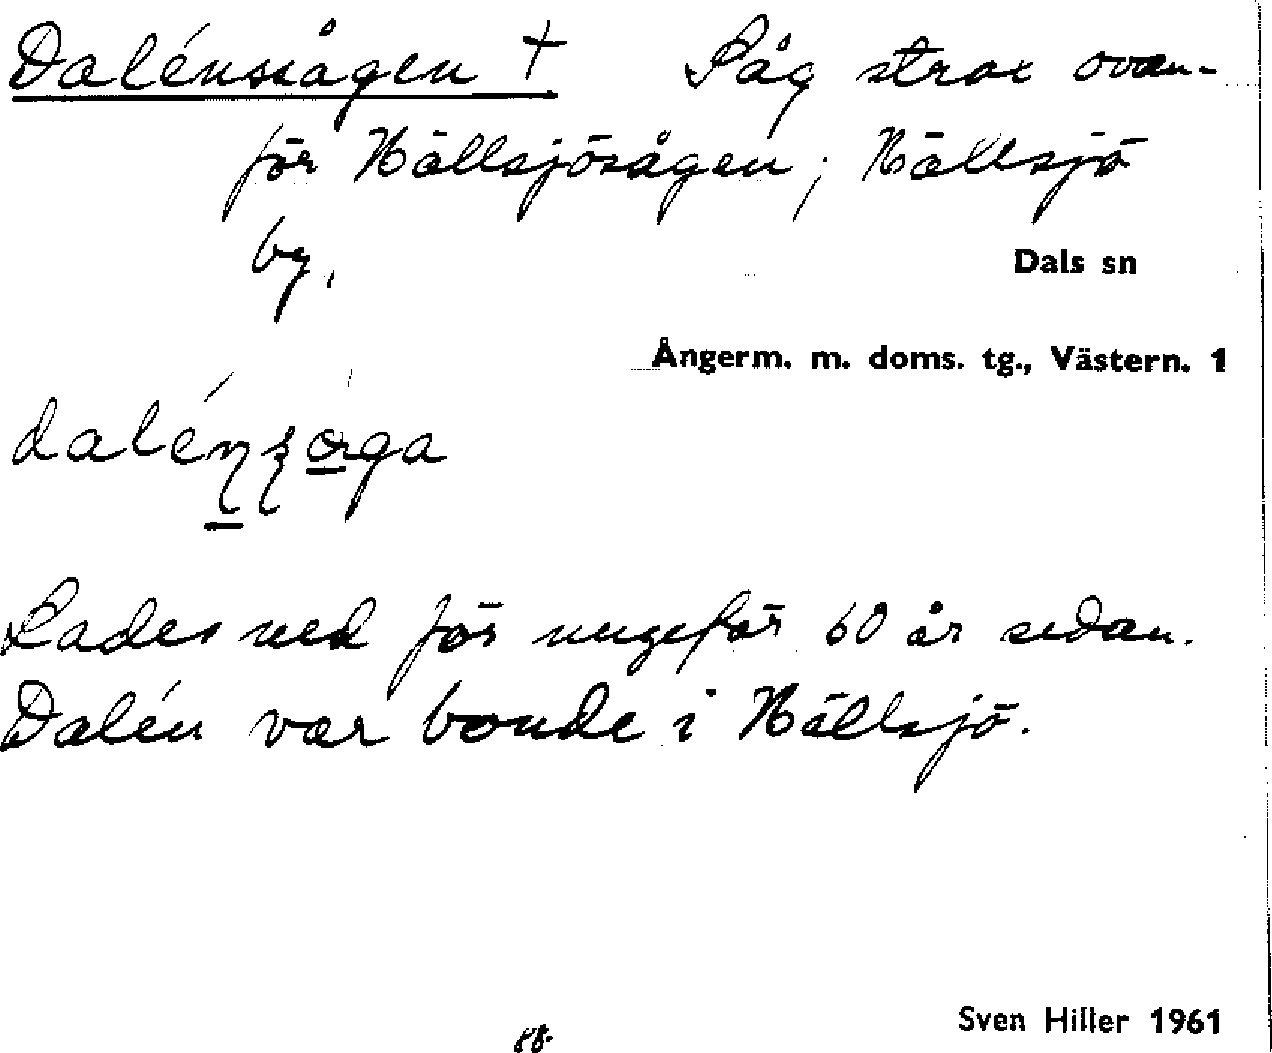 Dalénssågen † Såg strax ovan-
för Hällsjösågen; Hällsjö
by.
Dals sn
Ångerm. m. doms. tg., Västern. 1
Lades ned för ungefär 60 år sedan.
Dalén var bonde i Hällsjö.
88.
Sven Hiller 1961